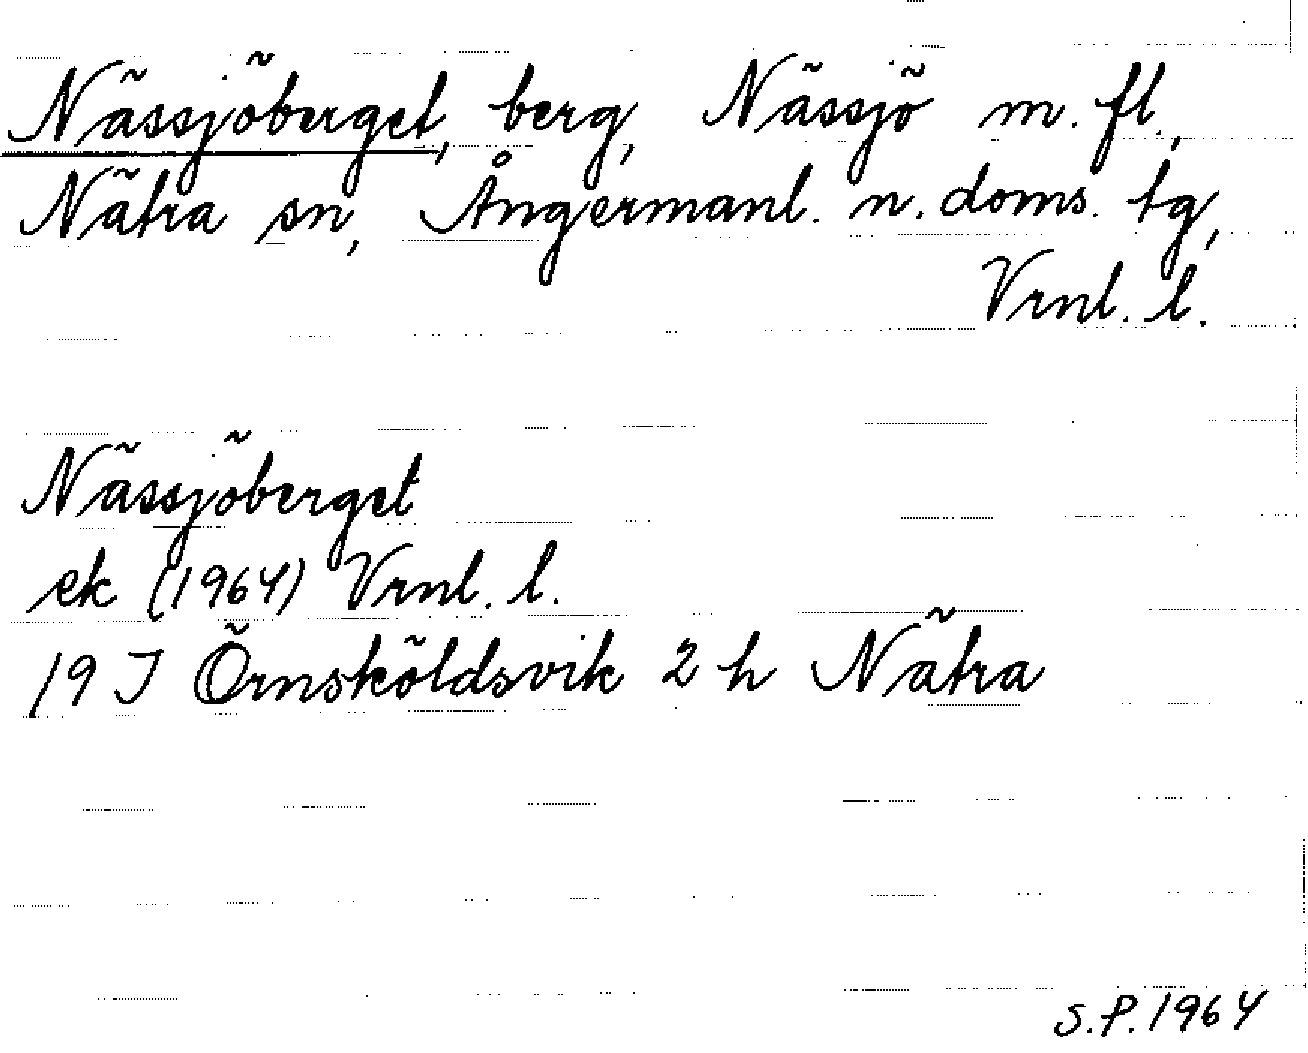 Nässjöberget, berg, Nässjö m. fl.,
Nätra sn, Ångermanl. n. doms. tg,
Vrnl. l.
Nässjöberget
ek (1964) Vrnl. l.
19 J Örnsköldsvik 2 h Nätra
S.P. 1964